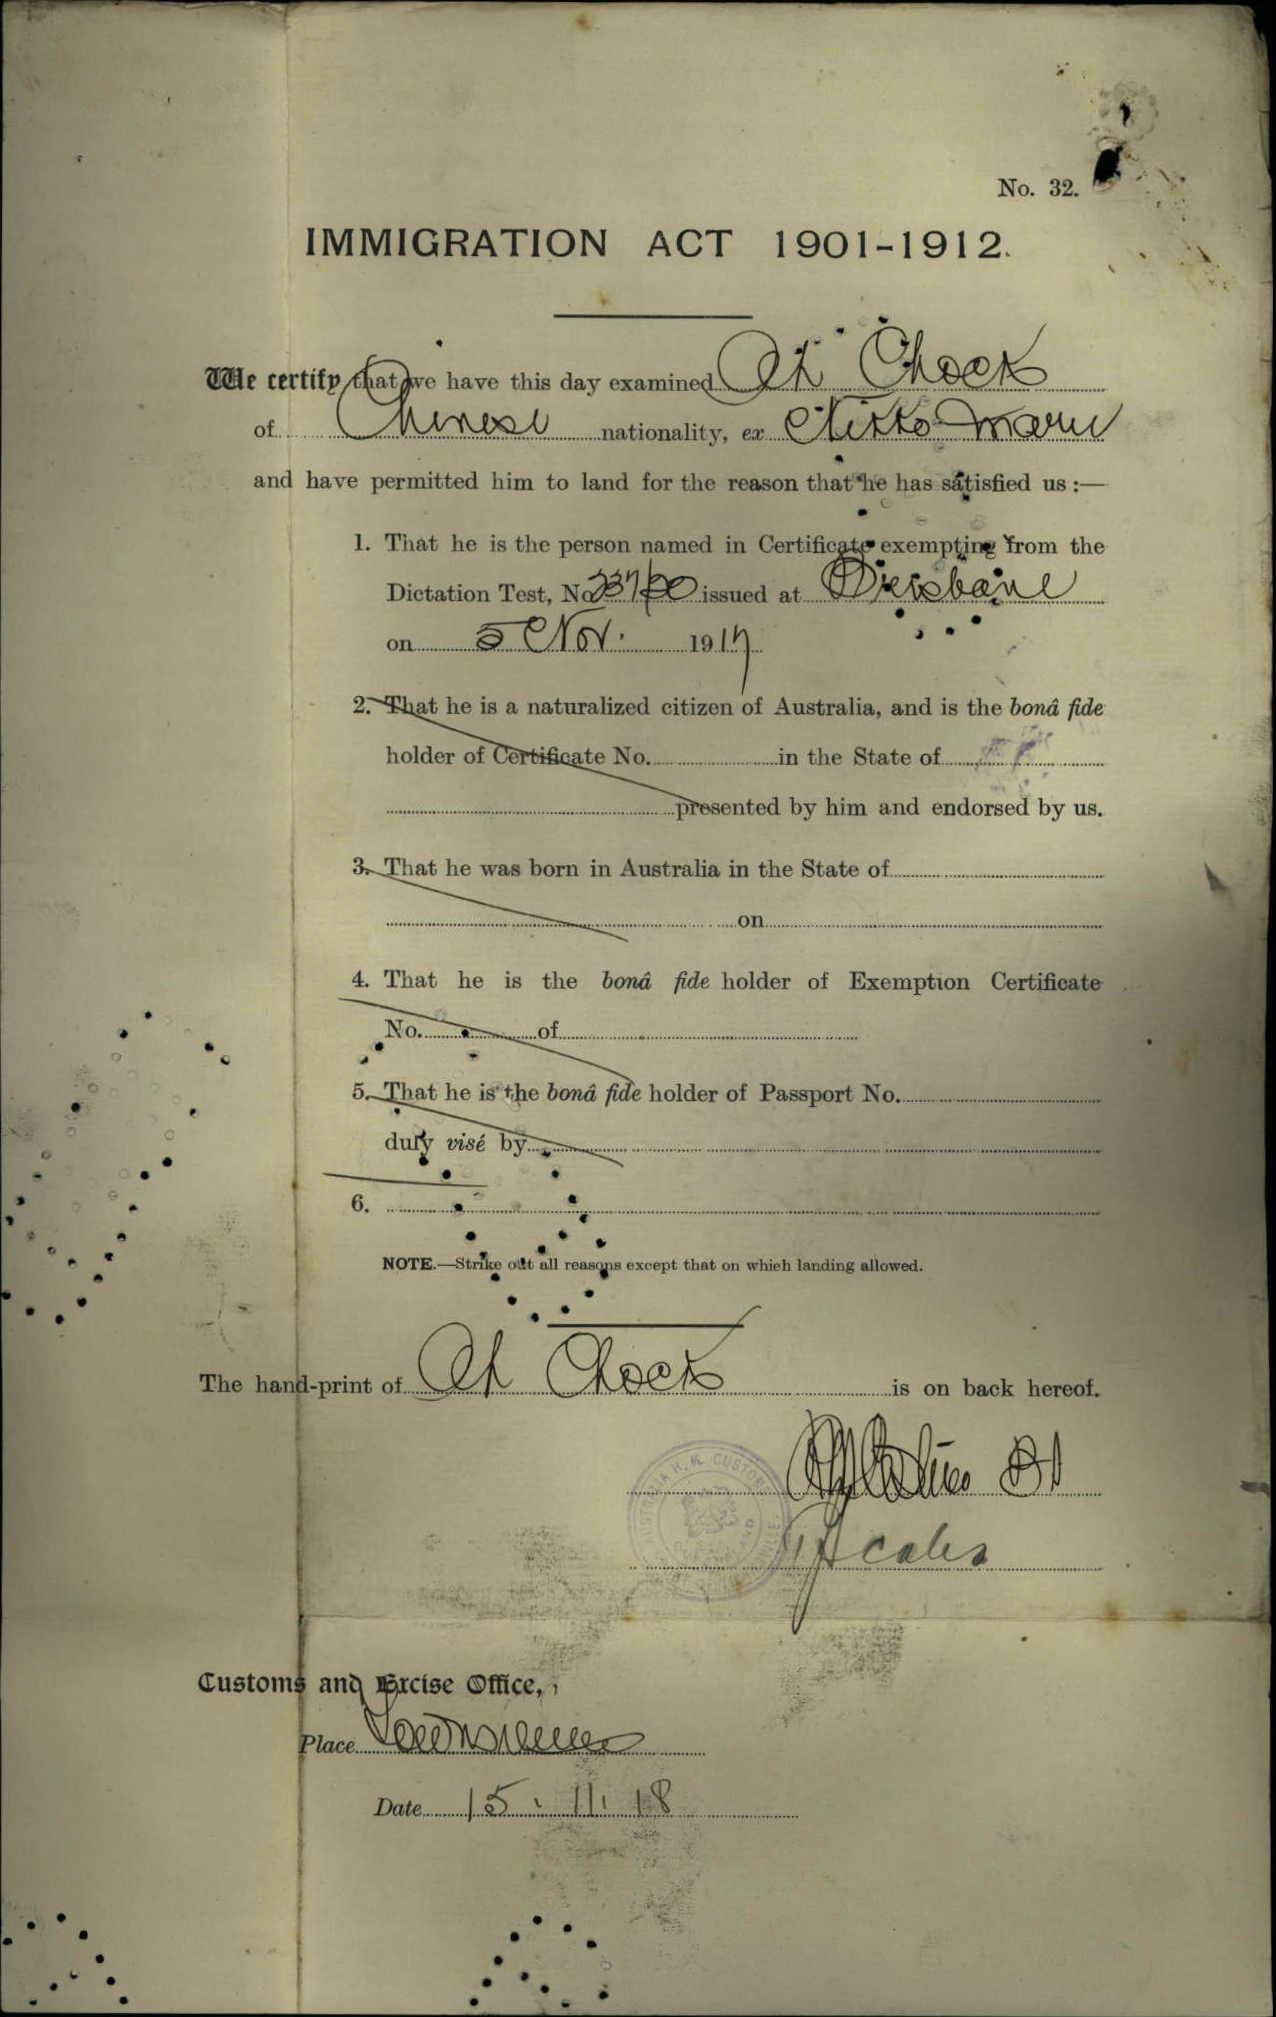 No. 32.
IMMIGRATION ACT 1901-1912.
We certify that we have this day examined Ah Chock
of Chinese nationality, ex Nikko Maru
and have permitted him to land for the reason that he has satisfied us :—
1. That he is the person named in Certificate exempting from the
Dictation Test, No. issued at Brisbane
on 5 Nov. 1917
2. That he is a naturalized citizen of Australia, and is the bonâ fide
holder of Certificate No. in the State of
presented by him and endorsed by us.
3. That he was born in Australia in the State of
on
4. That he is the bonâ fide holder of Exemption Certificate
No. of
5. That he is the bonâ fide holder of Passport No.
duly visé by
6.
NOTE.—Strike out all reasons except that on which landing allowed.
The hand-print of Ah Chock is on back hereof.
Customs and Excise Office,
Place Townsville
Date 15. 11. 18